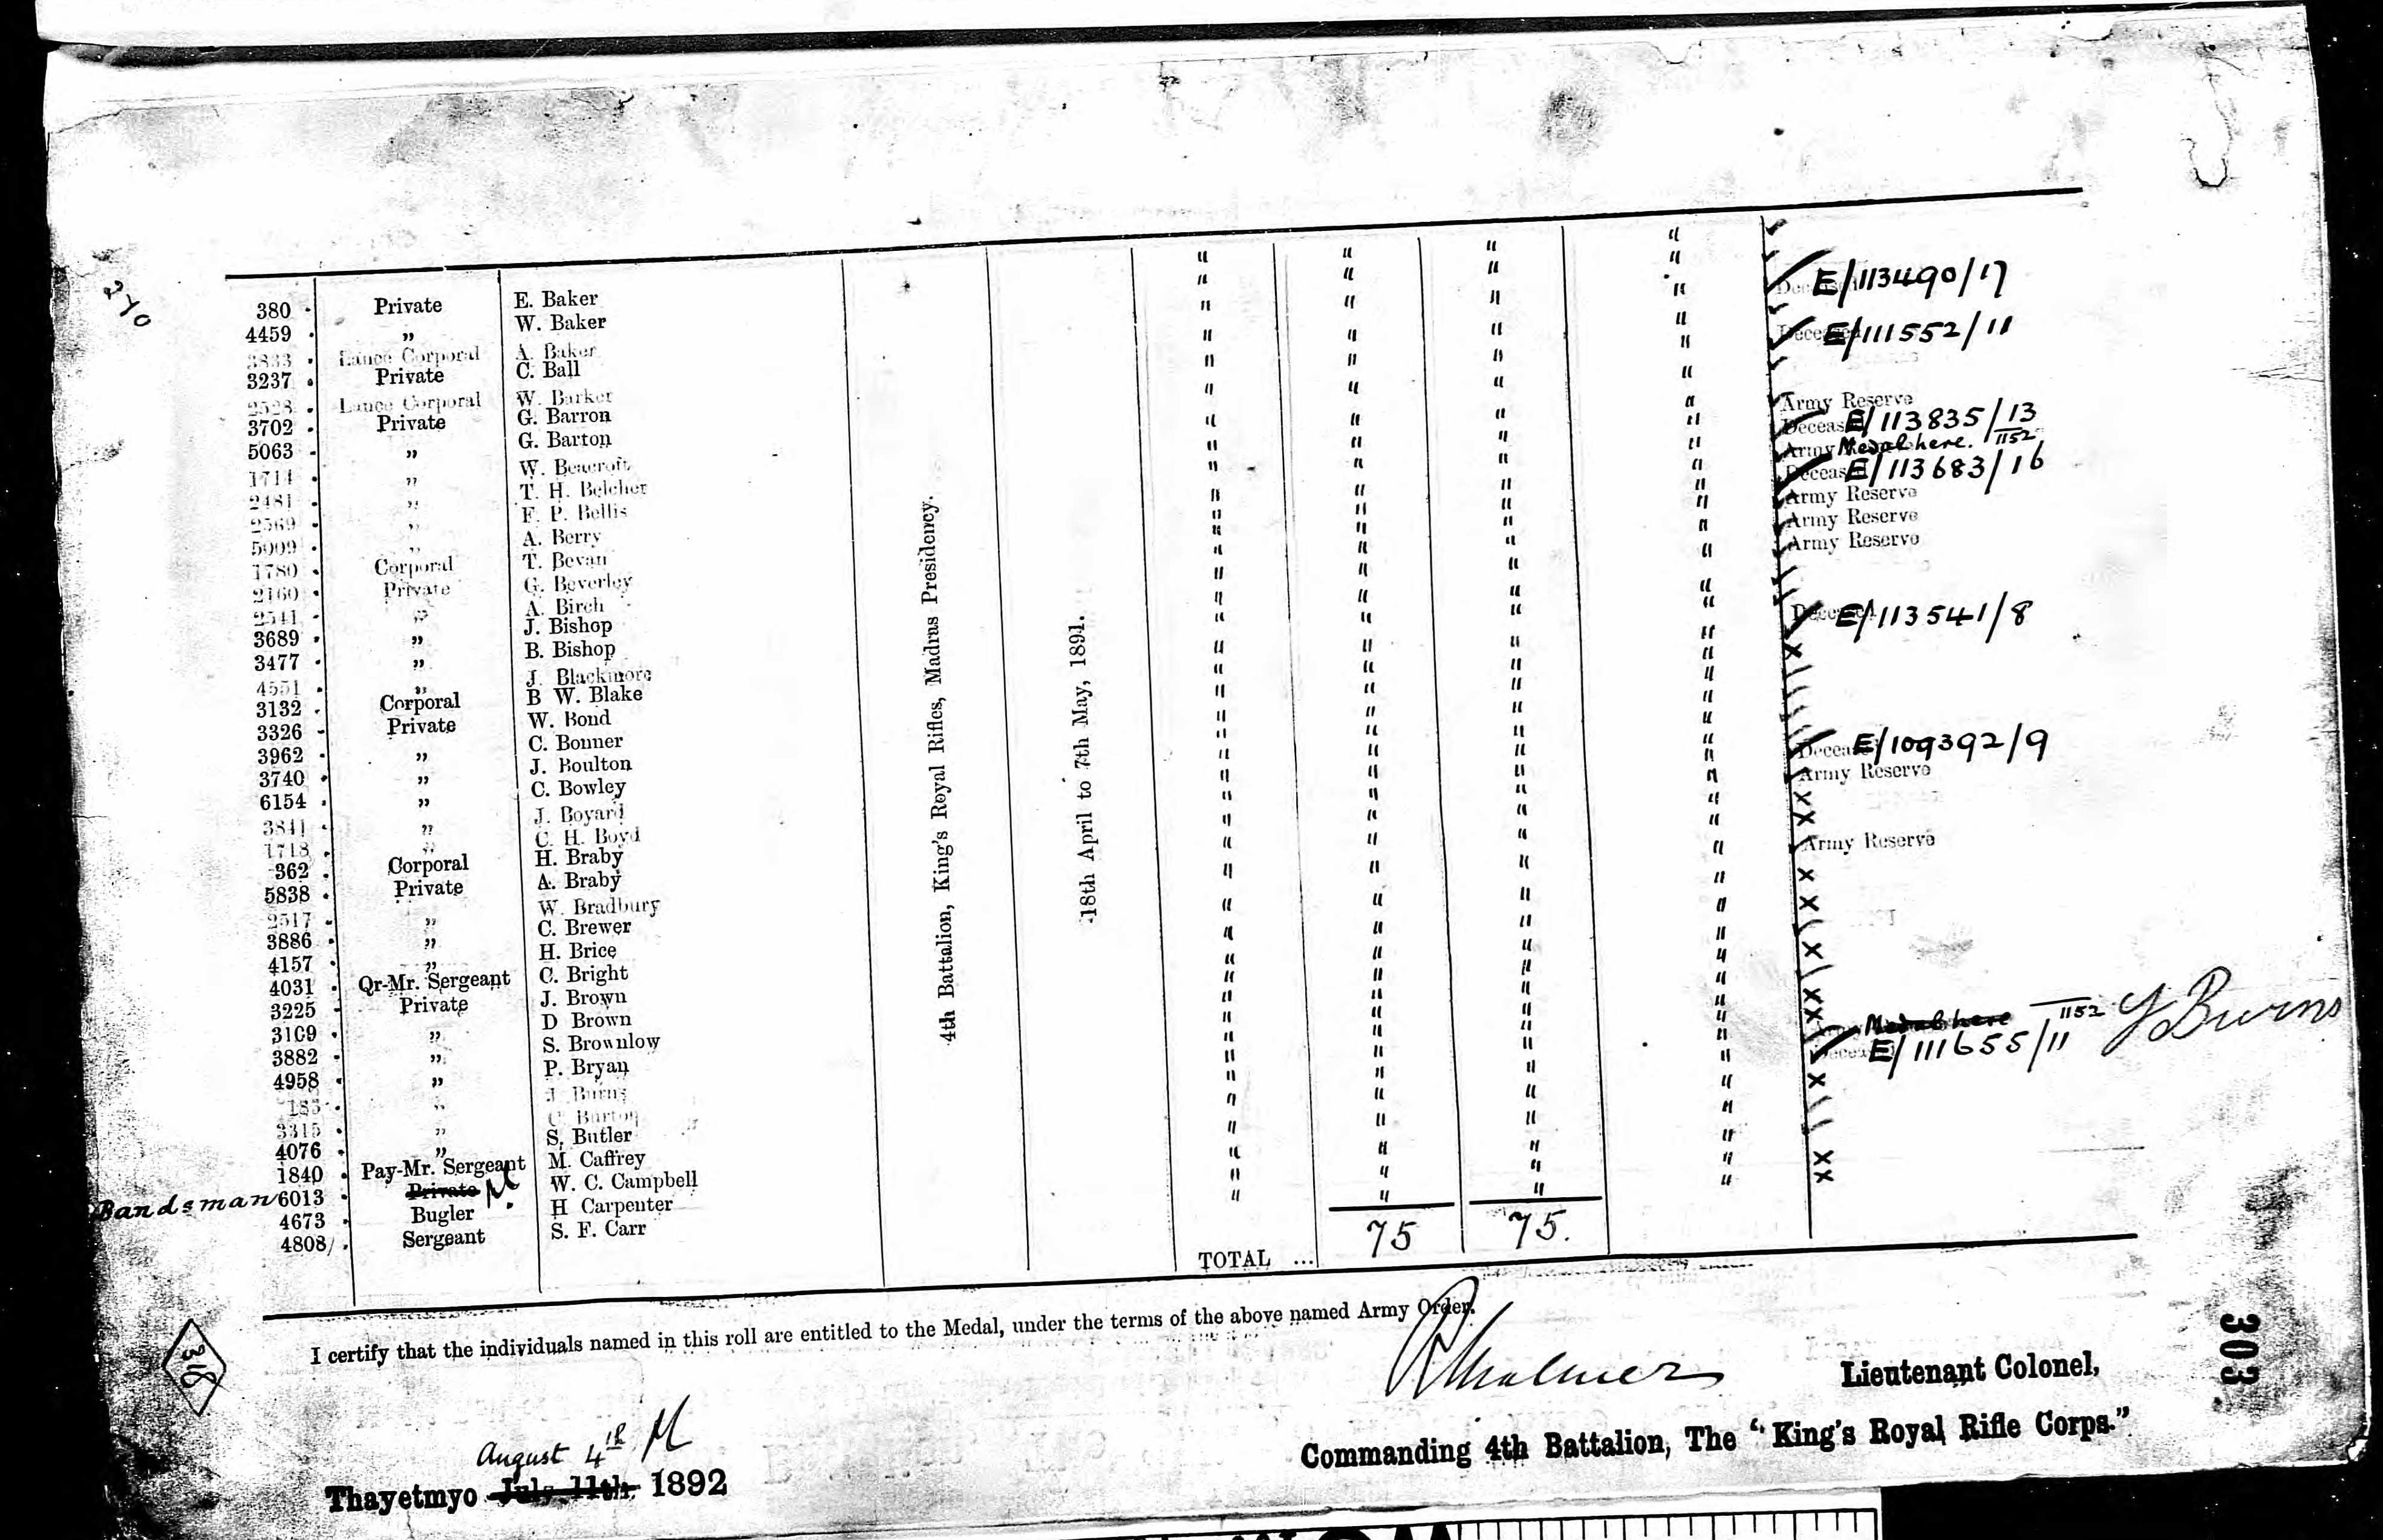 270
380 Private E. Baker " " " "
4459 " W. Baker " " " "
3833 Lance Corporal A. Baker " " " " E/113490/17
3237 Private C. Ball " " " "
2528 Lance Corporal W. Barker " " " " E/111552/11
3702 Private G. Barron " " " "
5063 " G. Barton " " " "
1714 " W. Beacroft " " " " Army Reserve
2481 " T. H. Belcher " " " " Deceased E/113835/13
2569 " F. P. Bellis " " " " Army Medal here. 1152
5009 " A. Berry " " " " Deceased E/113683/16
1780 Corporal T. Bevan " " " " Army Reserve
2160 Private G. Beverley " " " " Army Reserve
2541 " A. Birch " " " " Army Reserve
3689 " J. Bishop " " " "
3477 " B. Bishop " " " "
4551 " J. Blackmore " " " " Deceased E/113541/8
3132 Corporal B W. Blake " " " "
3326 Private W. Bond " " " "
3962 " C. Bonner " " " "
3740 " J. Boulton " " " "
6154 " C. Bowley " " " "
3841 " J. Boyard " " " " Deceased E/109392/9
1718 " C. H. Boyd " " " " Army Reserve
362 Corporal H. Braby " " " "
5838 Private A. Braby " " " "
2517 " W. Bradbury " " " " Army Reserve
3886 " C. Brewer " " " "
4157 " H. Brice " " " "
4031 Qr-Mr. Sergeant C. Bright " " " "
3225 Private J. Brown " " " "
3109 " D Brown " " " "
3882 " S. Brownlow " " " "
4958 " P. Bryan " " " "
185 " J. Burns " " " " Medal here 1152 J Burns
3315 " C. Burton " " " " E/111655/11
4076 " S. Butler " " " "
1840 Pay-Mr. Sergeant M. Caffrey " " " "
Bandsman 6013 Private W. C. Campbell " " " "
4673 Bugler H Carpenter " " " "
4808 Sergeant S. F. Carr " " " "
4th Battalion, King's Royal Rifles, Madras Presidency.
18th April to 7th May, 1891.
TOTAL ... 75 75.
I certify that the individuals named in this roll are entitled to the Medal, under the terms of the above named Army Order.
318
Lieutenant Colonel,
303
Commanding 4th Battalion, The "King's Royal Rifle Corps."
August 4th
Thayetmyo July 11th 1892